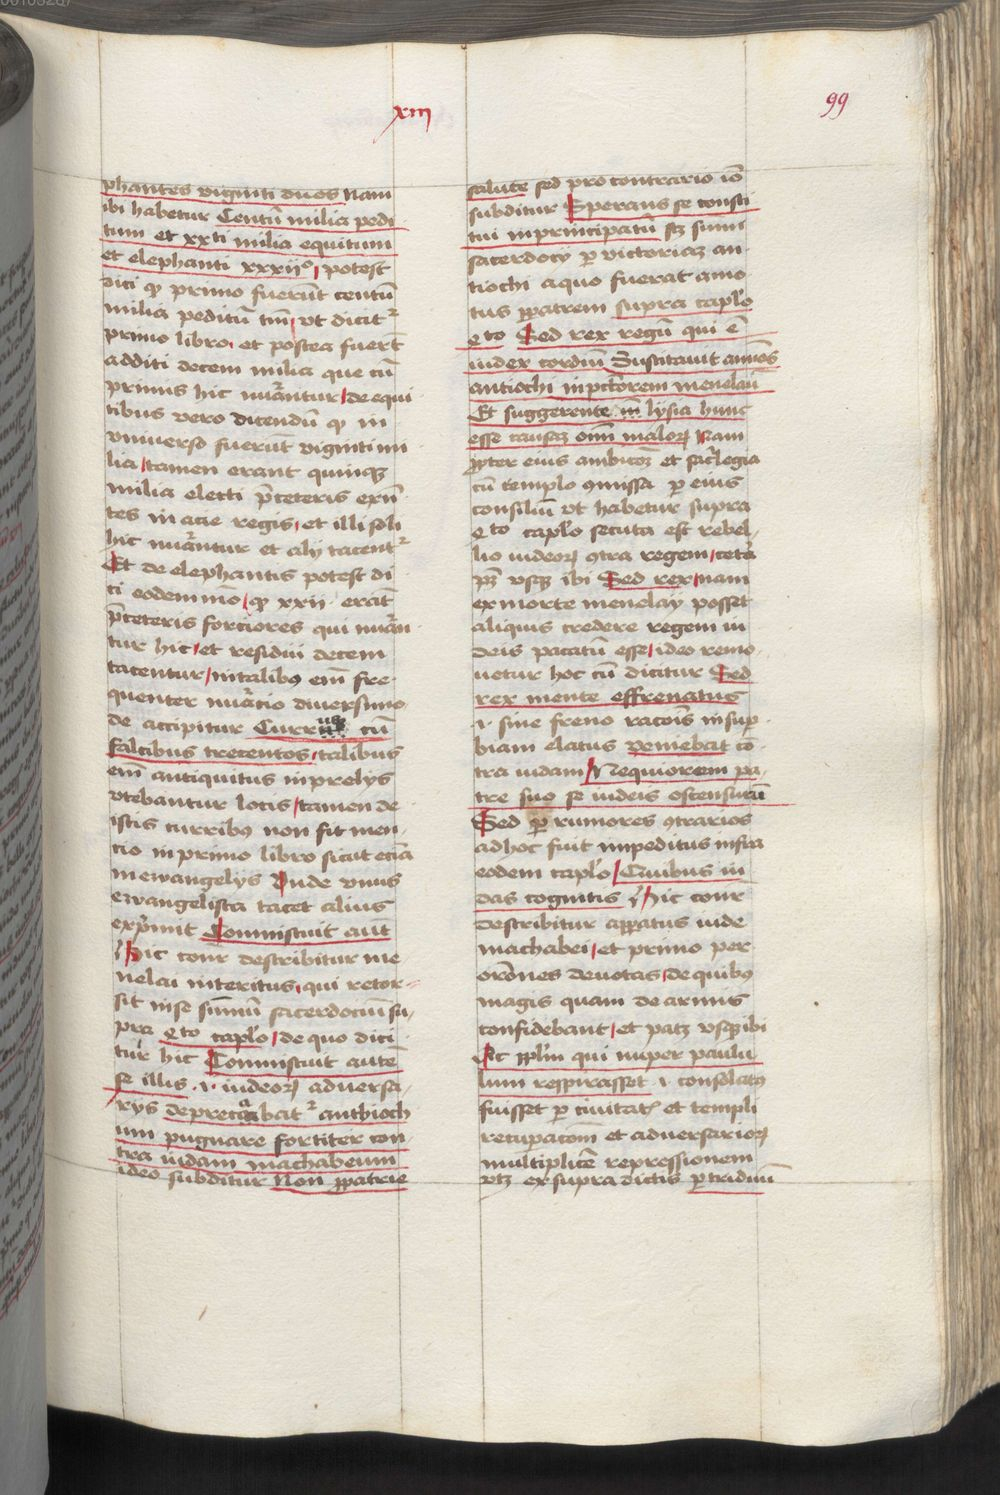 xiij
99
phantes viginti duos Nam
ibi habetur Centū milia pedi
tum et xxti milia equitum
et elephanti xxxijo potest
dici qꝫ primo fuerūt centū
milia peditū tm̄ vt dicitr
primo libro et postea fuerūt
additi decem milia que cū
primis hic nūrantur de equi
tibus vero dicendū qꝫ in
vniuerso fuerūt viginti mi
lia tamen erant quinqꝫ
milia electi p̄ceteris exn̄
tes in acie regis et illi soli
hic nūrantur et alij tacentr
Et de elephantis potest di
ci eodem mo qꝫ xxii erāt
p̄ceteris forciores qui nūran
tur hic et residui decem
tacentur in talibꝰ em̄ fre
quenter nūracio diuersimo
de accipitur Currus cū
falcibus trecentos talibus
em̄ antiquitus in prelijs
vtebantur locis tamen de
istis curribꝰ non fit men
cio in primo libro sicut eciā
in ewangelijs vnde vnus
ewangelista tacet alius
exp̄mit Commiscuit aūt
Hic cōnr describitur me
nelai interitus qui retor
sit in se sūmū sacerdociū su
pra 4to caplo de quo dici
tur hic Commiscuit autē
se illis .i. iudeoꝝ aduersa
rijs deprecabatr anthioch
um pugnare fortiter con
tra iudam machabeum
ideo subditur Non ꝓpatrie
salute sed pro contrario iō
subditur Sperans se consti
tui in principatū sꝫ summi
sacerdocij ꝑ victoriaꝫ an
tiochi a quo fuerat amo
tus ꝓpatrem supra caplo
4to Sed rex regū qui ē
iudex cordiū Suscitauit animos
antiochi in pctōrem menelaū
Et suggerente ei lysia hunc
esse causaꝫ oīm̄ maloꝝ Nam
ꝓpter eius ambicōeꝫ et sacrlegia
cū templo ꝯmissa ꝑ eius
consiliū vt habetur supra
4to caplo secuta est rebel
lio iudeoꝝ ꝯtra regem cetera
pꝫ vsqꝫ ibi Sed rex nam
ex morte menelay posset
aliquis credere regem iu
deis pacatū esse ideo remo
uetur hoc cū dicitur Sed
rex mente effrenatus
.i. sine freno racōis in sup
biam elatus veniebat cō
tra iudam Nequiorem pa
tre suo se iudeis ostensurū
Sed ꝑ rumores ꝯtrarios
ad hoc fuit impeditus infra
eodem caplo Quibus iu
das cognitis Hic cōnr
describitur apparatus iude
machabei et primo per
orōnes deuotas de quibꝰ
magis quam de armis
confidebant et patꝫ vsqꝫ ibi
Ac pplm̄ qui nuper paulu
lum respirasset .i. consolatꝰ
fuisset ꝑ ciuitatꝭ et templi
recupacōnem et aduersarioꝝ
multiplicē repressionem
vtꝫ ex supra dictis ꝑ triduū